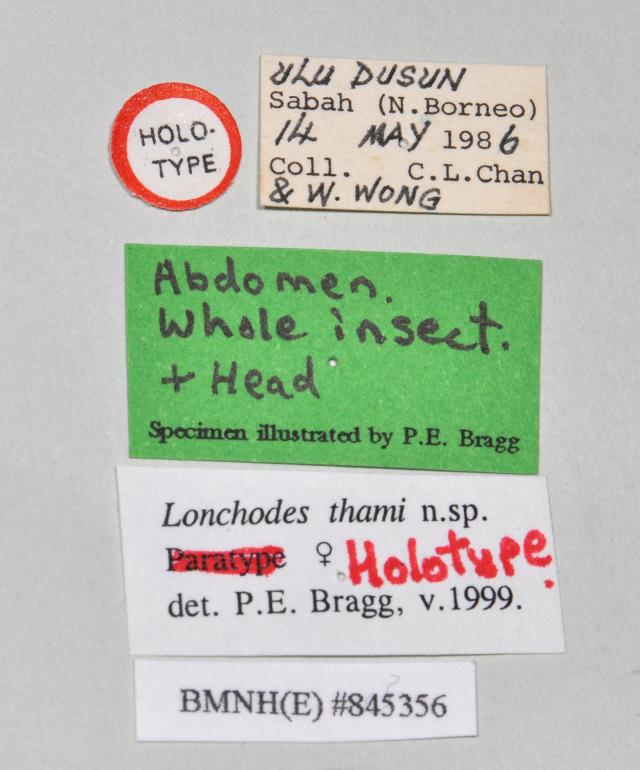 HOLO-
TYPE
ULU DUSUN
Sabah (N.Borneo)
14 MAY 1986
Coll. C.L.Chan
& W. WONG
Abdomen.
Whole insect.
+ Head
Specimen illustrated by P.E. Bragg
Lonchodes thami n.sp.
Paratype ♀ Holotype.
det. P.E. Bragg, v.1999.
BMNH(E) #845356